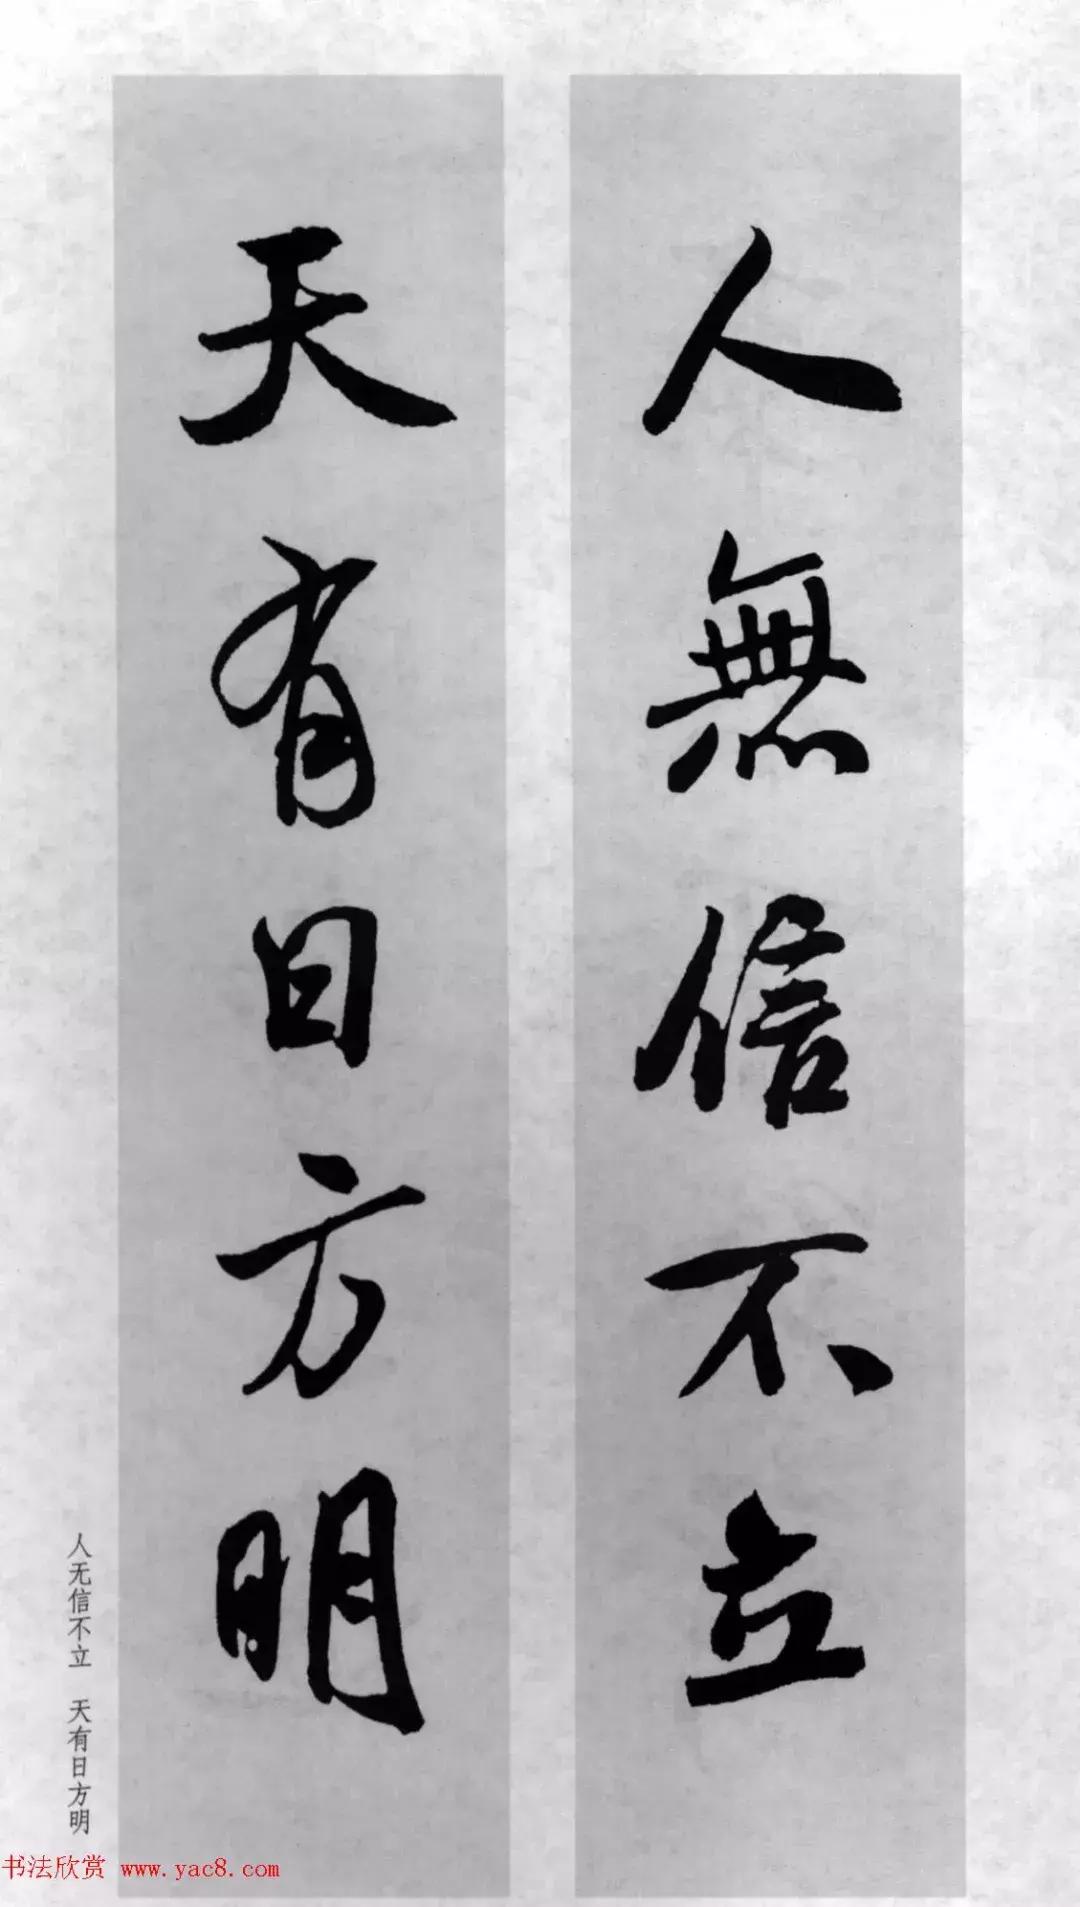 人無信不立
天有日方明
人无信不立 天有日方明
书法欣赏 www.yac8.com